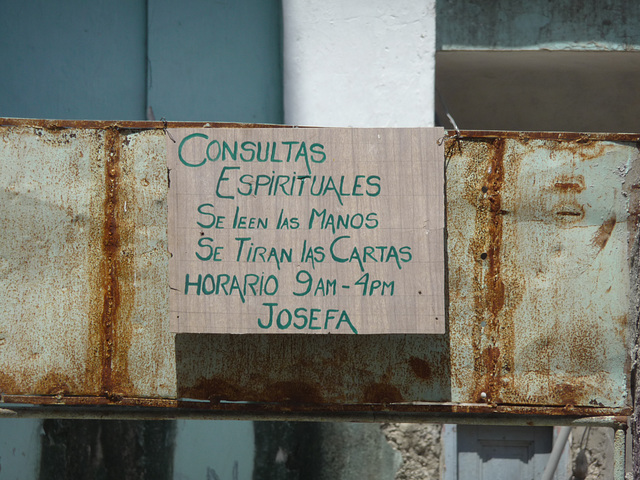 CONSULTAS
ESPIRITUALES
SE lEEN lAS MANOS
SE TIRAN lAS CARTAS
HORARIO 9AM-4PM
JOSEFA